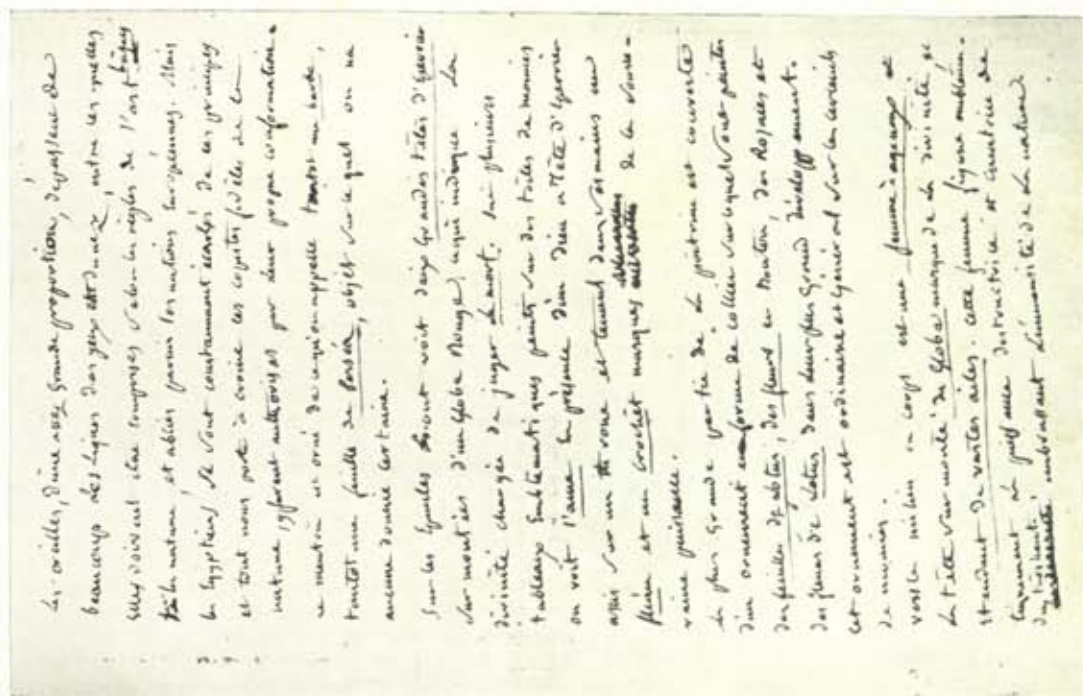 Les oreilles, d'une assez Grande proportion, dépassent de
beaucoup les lignes des yeux et du nez, entre les quelles
elles doivent être comprises selon les règles de l'art
la nature, et établies parmi les nations Européennes. Mais
les Egyptiens se sont constamment écartés de ces principes
et tout nous porte à croire ces copistes fidèles de la
nature, y furent autorisés par leur propre conformation.
ce menton est orné de ce qu'on appelle tantôt une barbe,
tantôt une feuille de Perséa, objet sur lequel on n'a
aucune donnée certaine.
Sur les Epaules on voit deux Grandes têtes d'Epervier
surmontées d'un Globe Rouge, ce qui indique La
divinité chargée de juger La mort. sur plusieurs
tableaux Emblématiques peints sur des toiles de momies
on voit l'ame en présence d'un dieu à Tête d'Epervier
assis sur un throne et tenant dans ses mains un
fléau et un crochet marques de la souve-
raine puissance.
La plus Grande partie de La poitrine est couverte
d'un ornement en forme de collier sur lequel sont peintes
des feuilles de, des fleurs en Bouton, des Rosaces et
des fleurs de Lotus dans leur plus Grand développement.
cet ornement est ordinaire et Général sur les cercueils
de momies.
vers le milieu du corps est une femme à genoux et
La tête surmontée du Globe marque de La divinité, et
etendant de vastes ailes. cette femme figure
La puissance destructrice et créatrice de
La nature